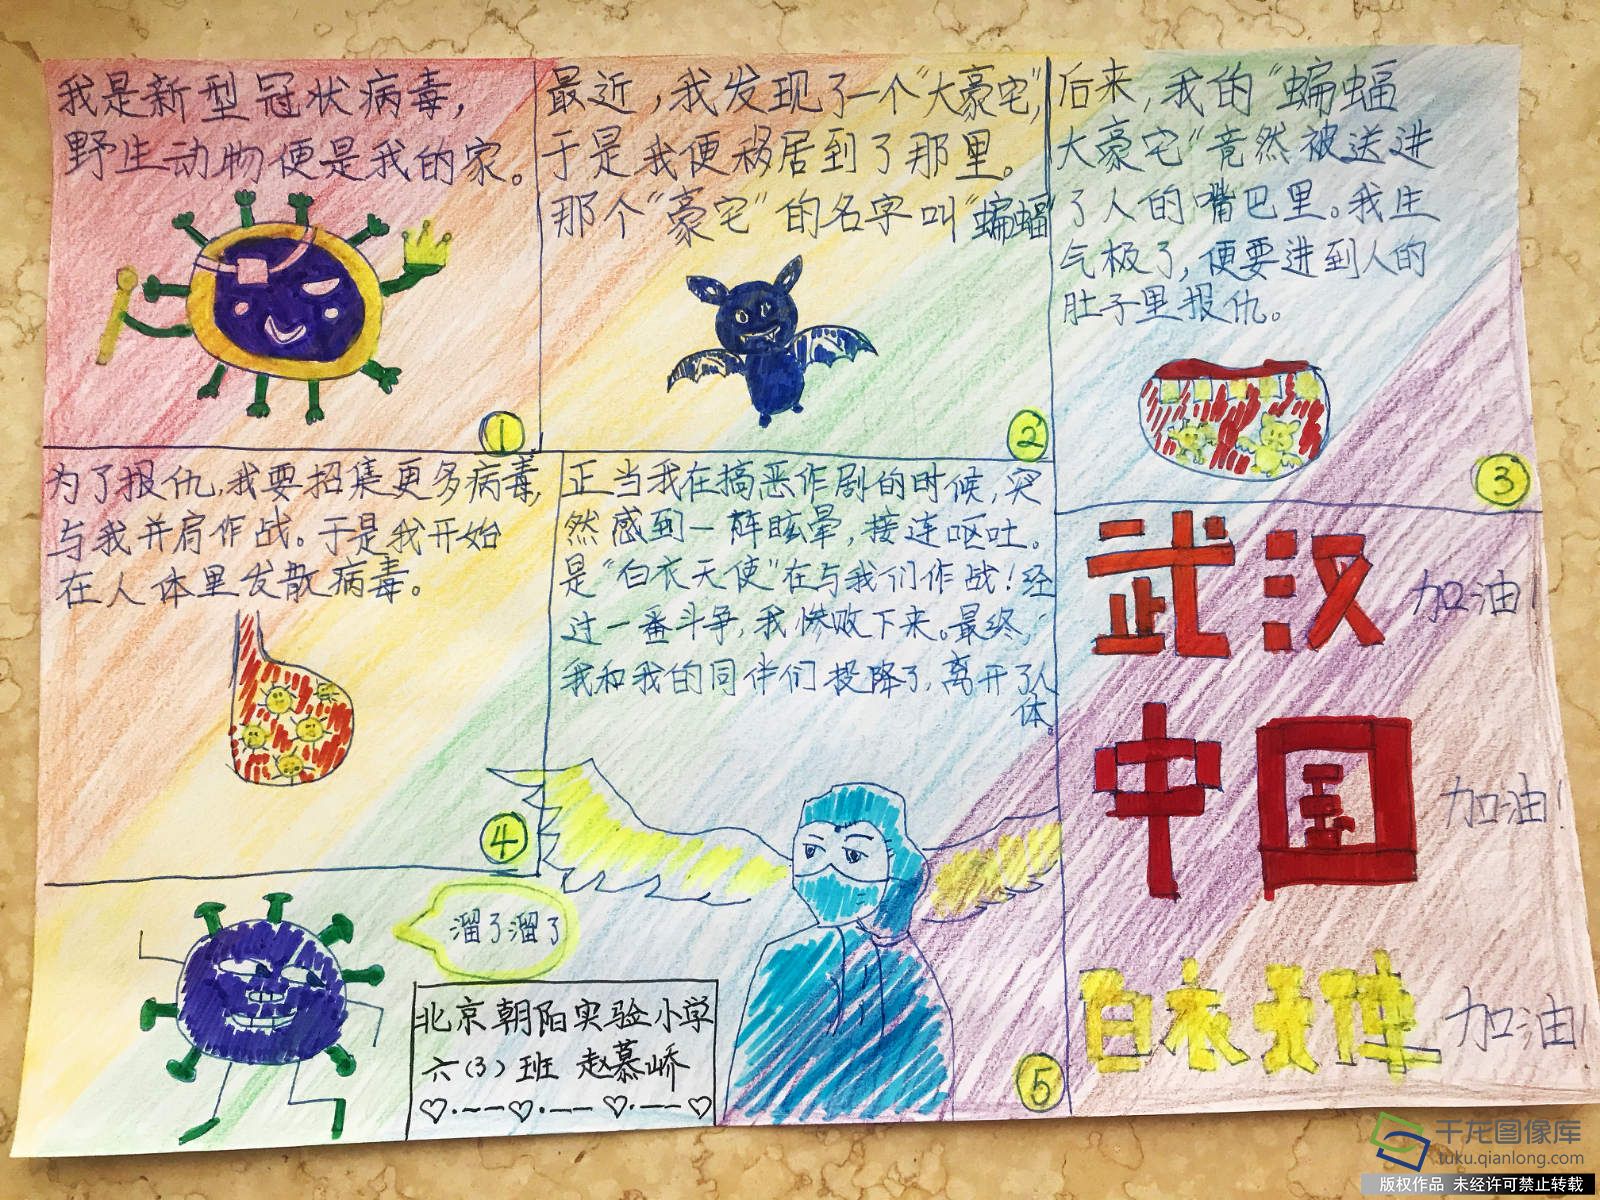 我是新型冠状病毒,
野生动物便是我的家。
①
最近,我发现了一个“大豪宅”,
于是我便移居到了那里。
那个“豪宅”的名字叫“蝙蝠”
②
后来,我的“蝙蝠
大豪宅”竟然被送进
了人的嘴巴里。我生
气极了,便要进到人的
肚子里报仇。
③
为了报仇,我要招集更多病毒,
与我并肩作战。于是我开始
在人体里发散病毒。
④
正当我在搞恶作剧的时候,突
然感到一阵眩晕,接连呕吐。
是“白衣天使”在与我们作战!经
过一番斗争,我惨败下来。最终,
我和我的同伴们投降了,离开了人
体。
⑤
溜了溜了
北京朝阳实验小学
六(3)班 赵慕峤
武汉 加油!
中国 加油!
白衣天使 加油!
千龙图像库
tuku.qianlong.com
版权作品 未经许可禁止转载